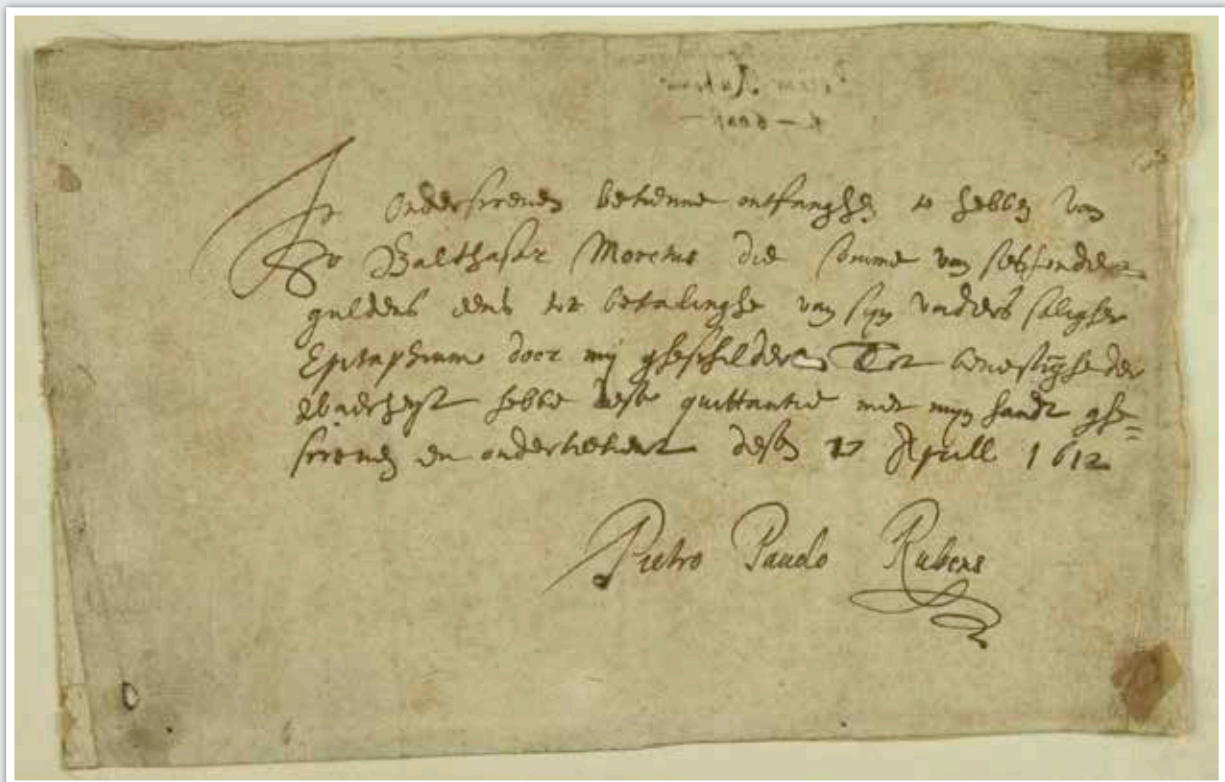 Ic onderscreven bekenne ontfanghen te hebben van
Sr Balthasar Moretus die somme van seshondert
guldens eens tot betalinghe van syn vaders saligher
Epitaphium door mij gheschildert Tot bevestighe der
waerheyt hebbe dese quittantie met myn handt ghe=
screven en onderteekent desen April 1612
Pietro Pauolo Rubens